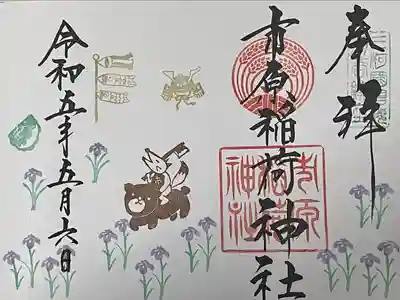 奉拝
市原稲荷神社
令和五年五月六日
市原稲荷神社